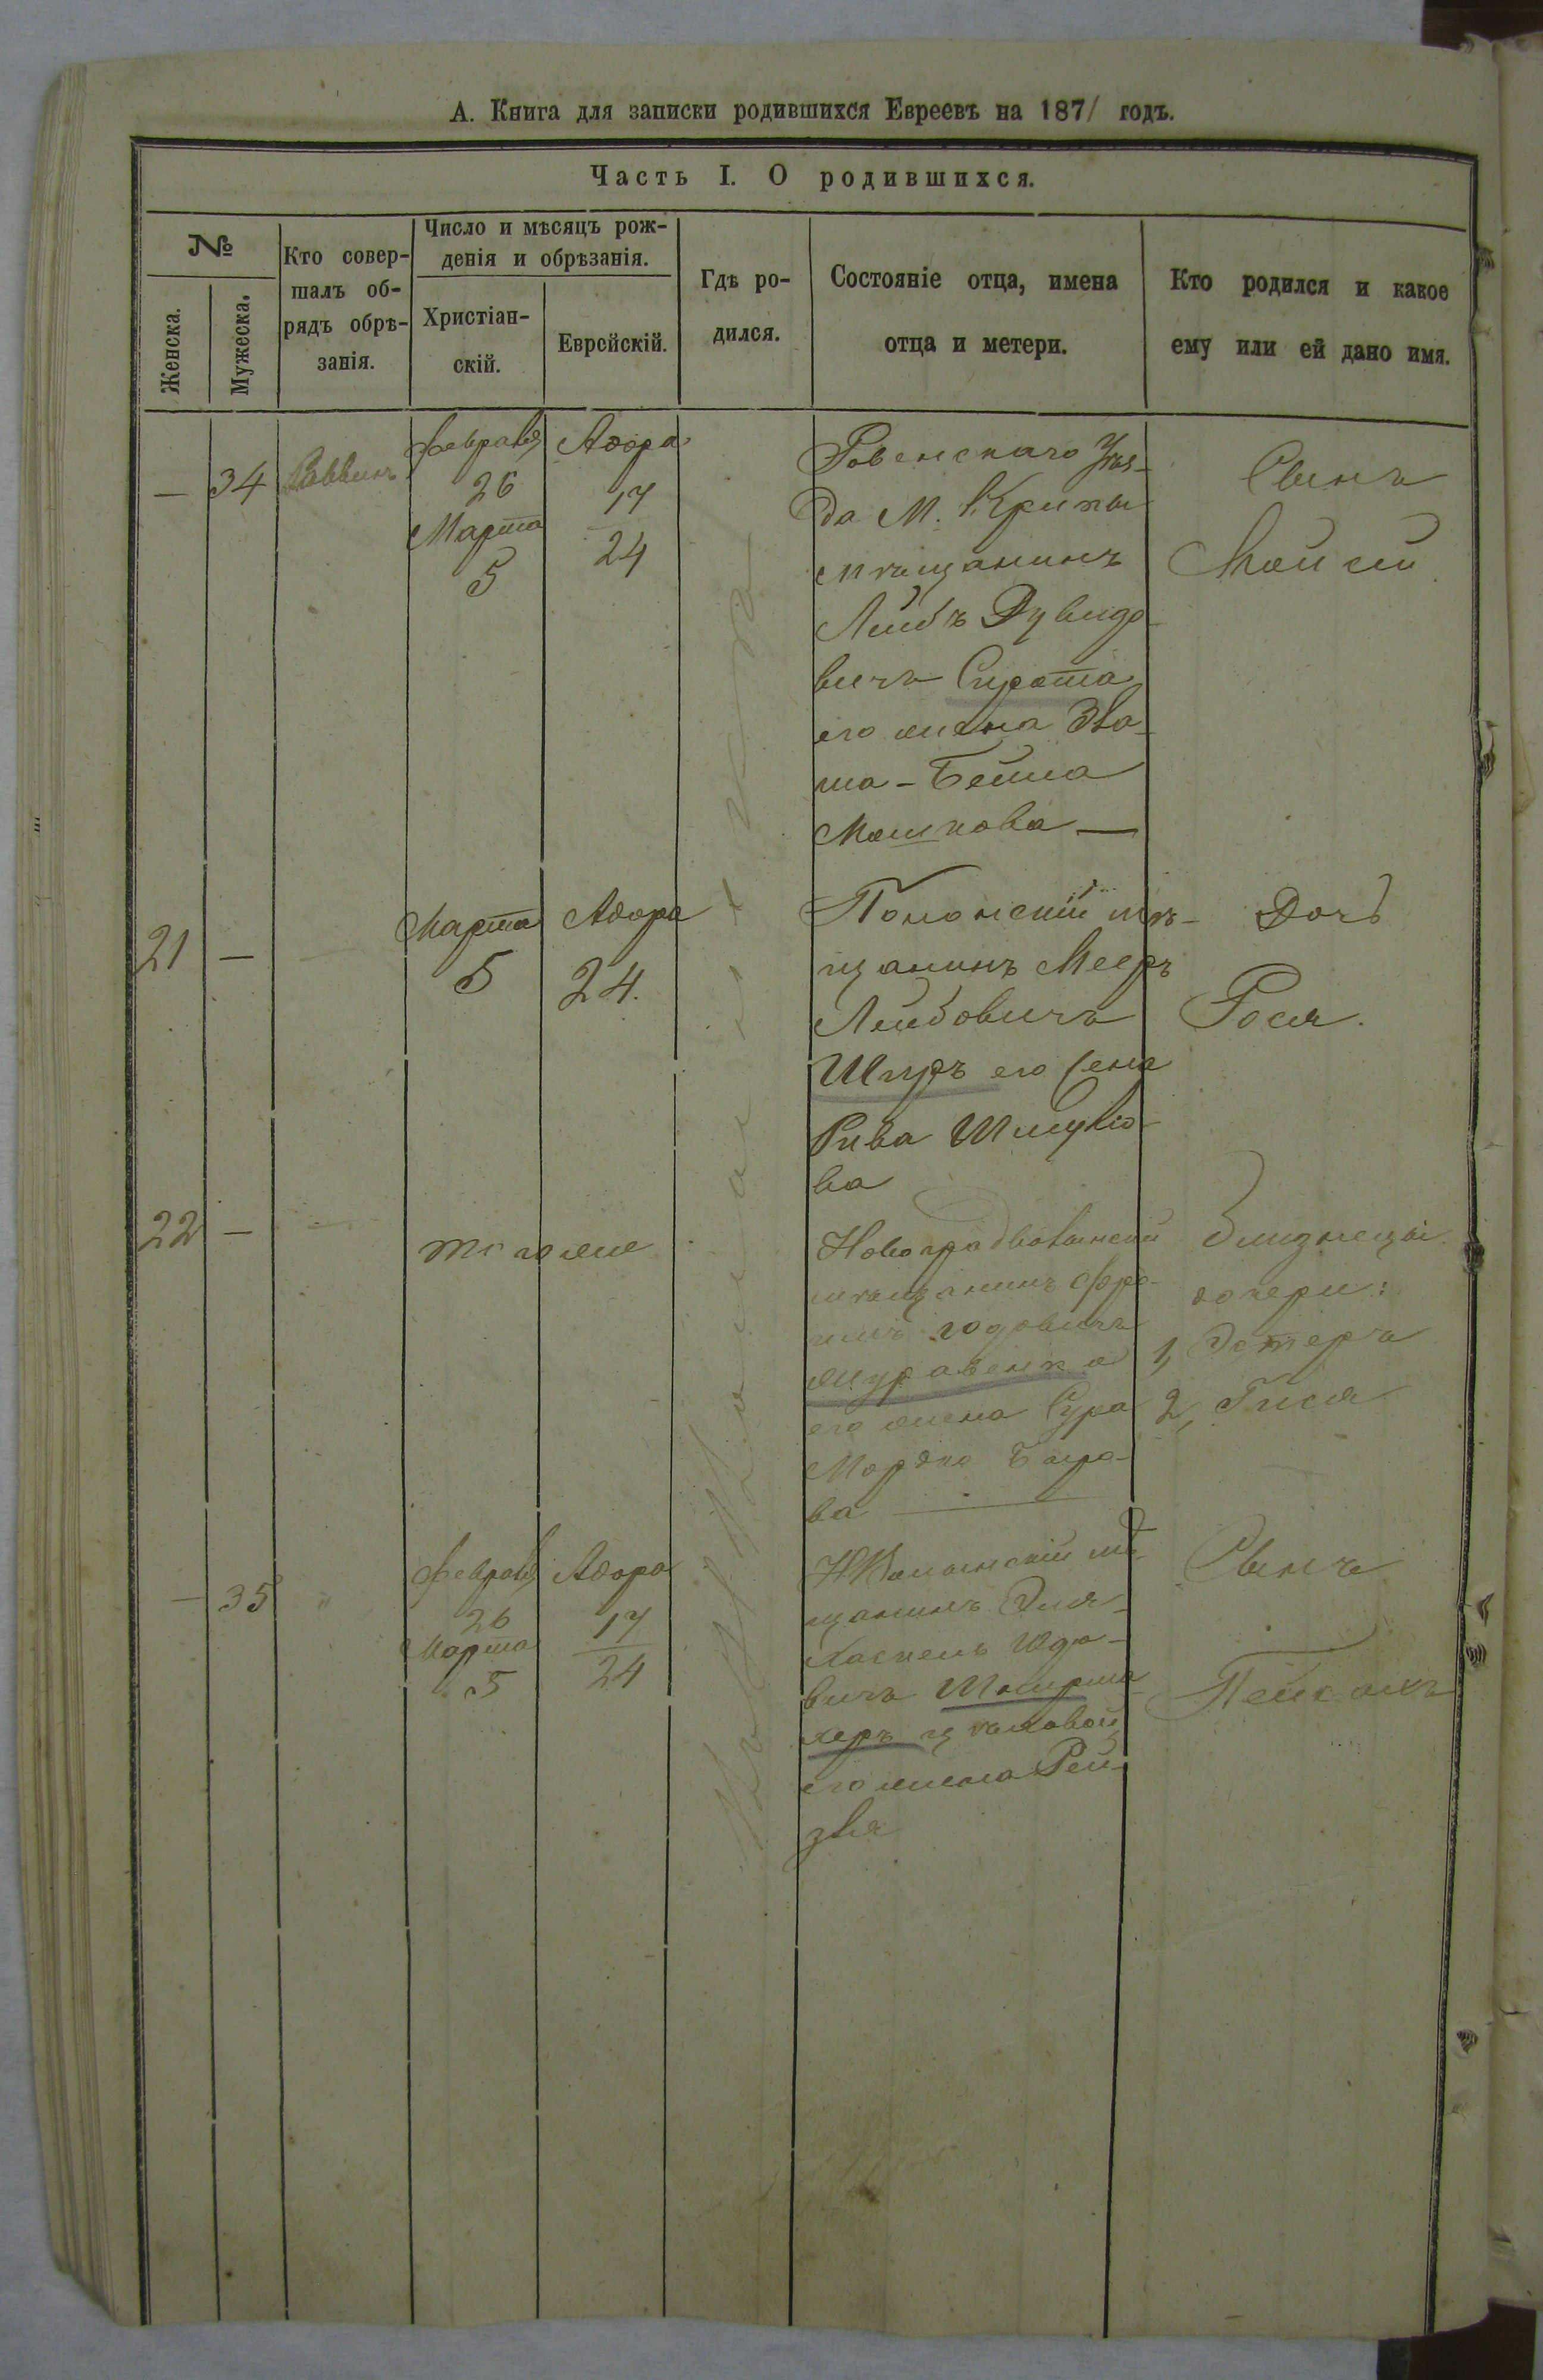 А. Книга для записки родившихся Евреевъ на 1871 годъ.
Часть I. О родившихся.
№
Женска.
Мужеска.
Кто совер-
шалъ об-
рядъ обрѣ-
занія.
Число и мѣсяцъ рож-
денія и обрѣзанія.
Христіан-
скій.
Еврейскій.
Гдѣ ро-
дился.
Состояніе отца, имена
отца и метери.
Кто родился и какое
ему или ей дано имя.
—
34
Раввинъ
Февраля
26
Марта
5
Адора
17
24
Ровенскаго Уѣз-
да М.
мѣщанинъ
Лейбъ Дувидо-
вичъ Сирота
его жена Зла-
та-Бейла
Мошкова —
Сынъ
Мойсей
21
—
—
Марта
5
Адора
24.
Полонскій мѣ-
щанинъ Мееръ
Лейбовичъ
его жена
Рива Шмуйло-
ва
Дочь
Рося.
22
—
—
того же
Новоградволынскій
мѣщанинъ Фро-
имъ Юдовичъ
Журавенко
его жена Сура
Мордко
ва —
близнецы
дочери:
1, Эстеръ
2, Гися
—
35
"
Февраля
26
Марта
5
Адора
17
24
НВолынскій мѣ-
щанинъ Эля-
Хаскель
вичъ
херъ цѣховой
его жена Рей-
зля
Сынъ
Пейсахъ